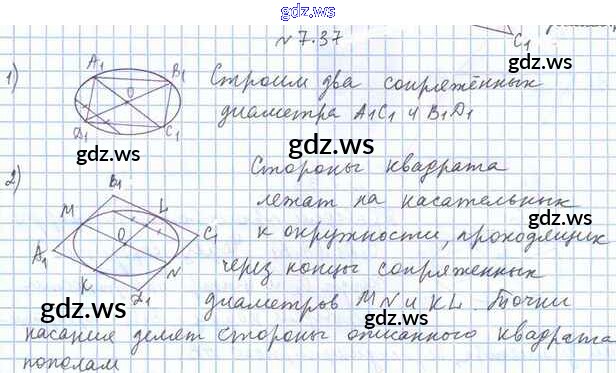 gdz.ws
№ 7.37
C1
1)
A1
B1
O
D1
C1
Строим два сопряжённых
диаметра A1C1 и B1D1
gdz.ws
gdz.ws
gdz.ws
2)
B1
M
L
O
C1
A1
K
N
D1
Стороны квадрата
лежат на касательных
к окружности, проходящих
через концы сопряженных
диаметров MN и KL. Точки
касание делят стороны описанного квадрата
пополам
gdz.ws
gdz.ws
gdz.ws